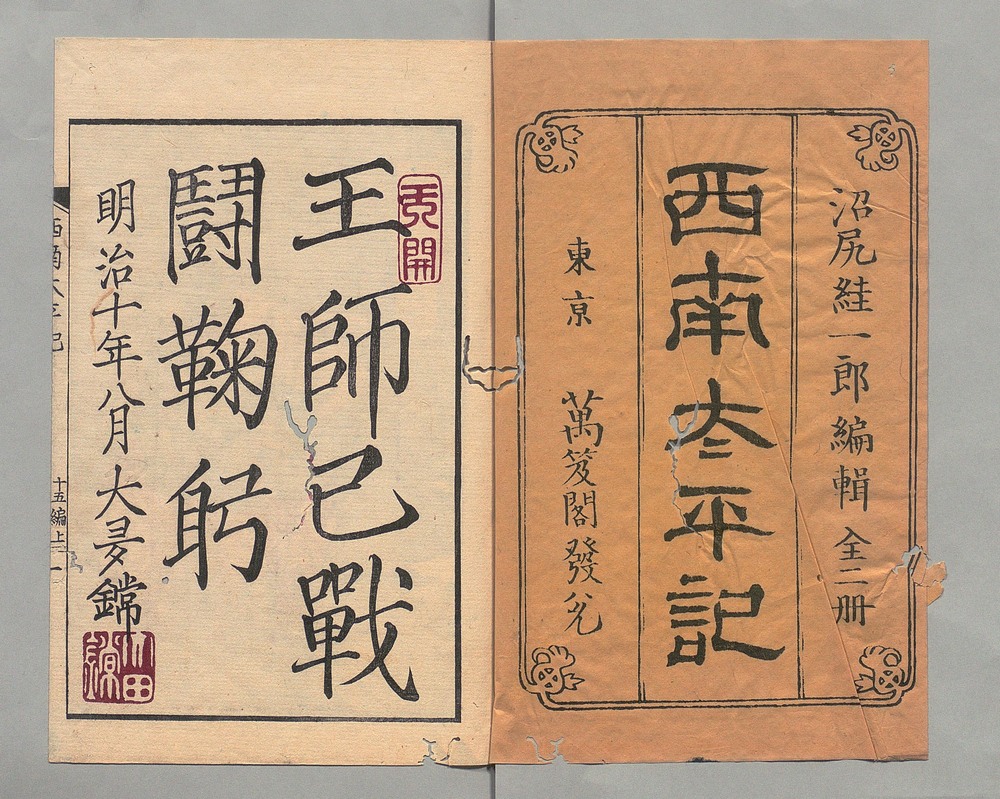 沼尻絓一郎編輯 全二册
西南太平記
東京 萬笈閣發兌
王師已戰
鬪鞠躬
明治十年八月 大
西南太平記
十五編上